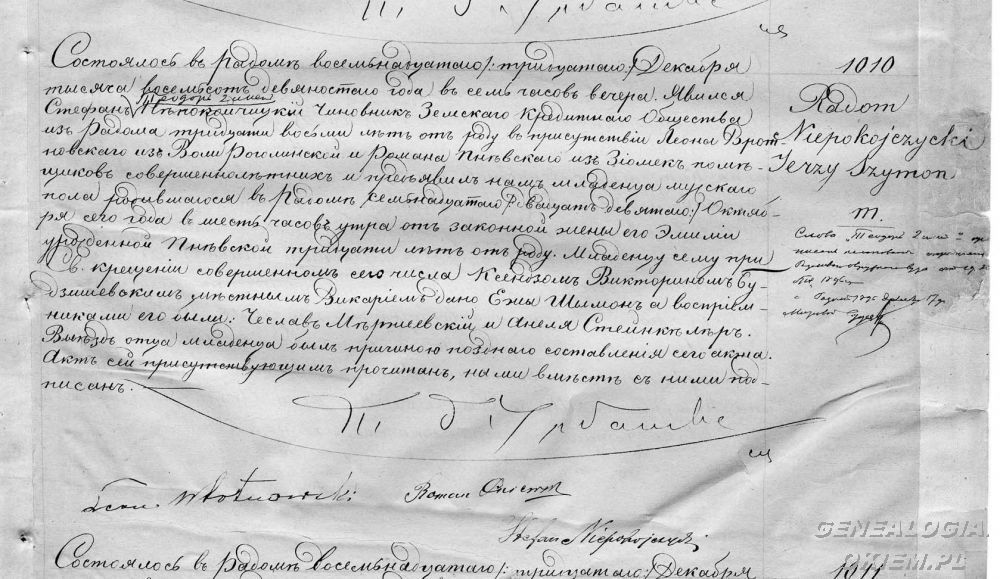 Состоялось въ Радомѣ восемьнадцатаго /: тридцатаго :/ Декабря
тысяча восемьсотъ девяностаго года въ семь часовъ вечера. Явился
Теодоръ 2 имен
Стефанъ Нѣпокойчицкій Чиновникъ Земскаго Кредитнаго Общества
изъ Радома тридцати восьми лѣтъ отъ роду въ присутствіи Леона Врот-
новскаго изъ Воли Роголинской и Романа Пнѣвскаго изъ Зіомекъ помѣ-
щиковъ совершеннолѣтнихъ и предъявилъ намъ младенца мужскаго
пола родившагося въ Радомѣ семьнадцатаго /: двадцать девятаго :/ Октяб-
ря сего года въ шесть часовъ утра отъ законной жены его Эмиліи
урожденной Пнѣвской тридцати лѣтъ отъ роду. Младенцу сему при
Св. крещеніи совершенномъ сего числа Ксендзомъ Викториномъ Бу-
дзишевскимъ мѣстнымъ Викаріемъ дано Ежы Шымонъ а воспріем-
никами его были: Чеславъ и Анеля Стейнкелъръ.
Выѣздъ отца младенца былъ причиною поздняго составленія сего акта.
Актъ сей присутствующимъ прочитанъ, нами вмѣстѣ съ ними под-
писанъ.
1010
Radom
Niepokojczycki
Jerzy Szymon
Слово „Теодоръ 2 имен"
Leon Wrotnowski
Roman
Stefan Niepokojczycki
Состоялось въ Радомѣ восемьнадцатаго /: тридцатаго :/ Декабря
1011
GENEALOGIA
OKIEM.PL